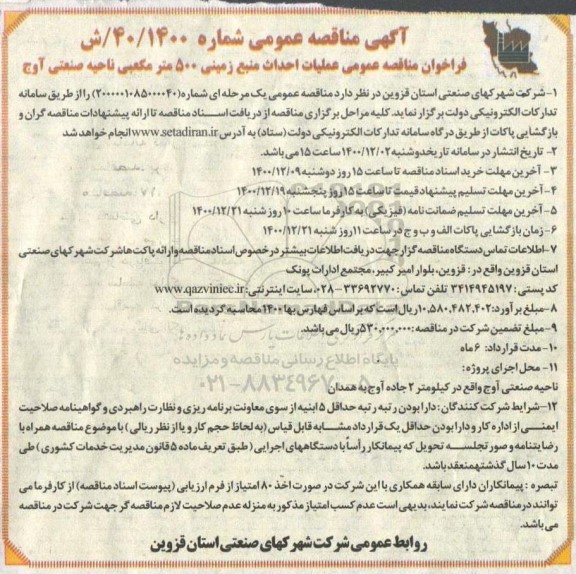 آگهی مناقصه عمومی شماره ۴۰/۱۴۰۰/ش
فراخوان مناقصه عمومی عملیات احداث منبع زمینی ۵۰۰ متر مکعبی ناحیه صنعتی آوج
۱- شرکت شهرکهای صنعتی استان قزوین در نظر دارد مناقصه عمومی یک مرحله ای شماره (۲۰۰۰۰۰۱۰۸۵۰۰۰۰۴۰) را از طریق سامانه
تدارکات الکترونیکی دولت برگزار نماید. کلیه مراحل برگزاری مناقصه از دریافت اسـناد مناقصه تا ارائه پیشنهادات مناقصه گران و
بازگشایی پاکات از طریق درگاه سامانه تدارکات الکترونیکی دولت (ستاد) به آدرس www.setadiran.ir انجام خواهد شد
۲- تاریخ انتشار در سامانه تاریخ دوشنبه ۱۴۰۰/۱۲/۰۲ ساعت ۱۵ می باشد.
۳- آخرین مهلت خرید اسناد مناقصه تا ساعت ۱۵ روز دوشنبه ۱۴۰۰/۱۲/۰۹
۴- آخرین مهلت تسلیم پیشنهاد قیمت تا ساعت ۱۵ روز پنجشنبه ۱۴۰۰/۱۲/۱۹
۵- آخرین مهلت تسلیم ضمانت نامه (فیزیکی) به کارفرما ساعت ۱۰ روز شنبه ۱۴۰۰/۱۲/۲۱
۶- زمان بازگشایی پاکات الف و ب و ج در ساعت ۱۱ روز شنبه ۱۴۰۰/۱۲/۲۱
۷- اطلاعات تماس دستگاه مناقصه گزار جهت دریافت اطلاعات بیشتر در خصوص اسناد مناقصه و ارائه پاکت ها شرکت شهرکهای صنعتی
استان قزوین واقع در: قزوین، بلوار امیر کبیر، مجتمع ادارات پونک
کد پستی: ۳۴۱۴۹۴۵۱۹۷ تلفن تماس: ۳۳۶۹۲۷۷۰-۰۲۸، سایت اینترنتی: www.qazviniec.ir
۸- مبلغ برآورد: ۱۰،۵۸۰،۴۸۲،۴۰۲ ریال است که بر اساس فهارس بها ۱۴۰۰ محاسبه گردیده است.
۹- مبلغ تضمین شرکت در مناقصه: ۵۳۰،۰۰۰،۰۰۰ ریال می باشد.
۱۰- مدت قرارداد: ۶ ماه
۱۱- محل اجرای پروژه:
ناحیه صنعتی آوج واقع در کیلومتر ۲ جاده آوج به همدان
۱۲- شرایط شرکت کنندگان: دارا بودن رتبه رتبه حداقل ۵ ابنیه از سوی معاونت برنامه ریزی و نظارت راهبردی و گواهینامه صلاحیت
ایمنـی از اداره کار و دارا بودن حداقل یک قرارداد مشـابه قابل قیاس (به لحاظ حجم کار و یا از نظر ریالی) با موضوع مناقصه همراه با
رضایتنامه و صورتجلسـه تحویل که پیمانکار رأساً با دستگاههای اجرایی (طبق تعریف ماده ۵ قانون مدیریت خدمات کشوری) طی
مدت ۱۰ سال گذشته منعقد باشد.
تبصره: پیمانکاران دارای سابقه همکاری با این شرکت در صورت اخذ ۸۰ امتیاز از فرم ارزیابی (پیوست اسناد مناقصه) از کارفرما می
توانند در مناقصه شرکت نمایند، بدیهی است عدم کسب امتیاز مذکور به منزله عدم صلاحیت لازم مناقصه گر جهت شرکت در مناقصه
می باشد.
روابط عمومی شرکت شهرکهای صنعتی استان قزوین
پایگاه اطلاع رسانی مناقصه و مزایده
۰۲۱-۸۸۳۴۹۶۷۰-۵